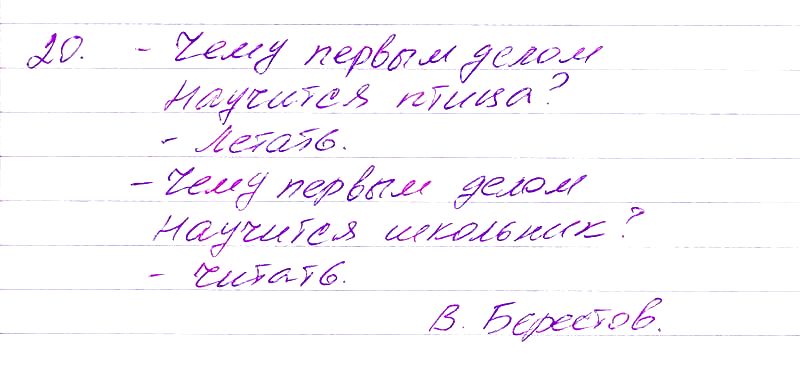 20. - Чему первым делом
Научится птица?
- Летать.
- Чему первым делом
Научится школьник?
- Читать.
В. Берестов.